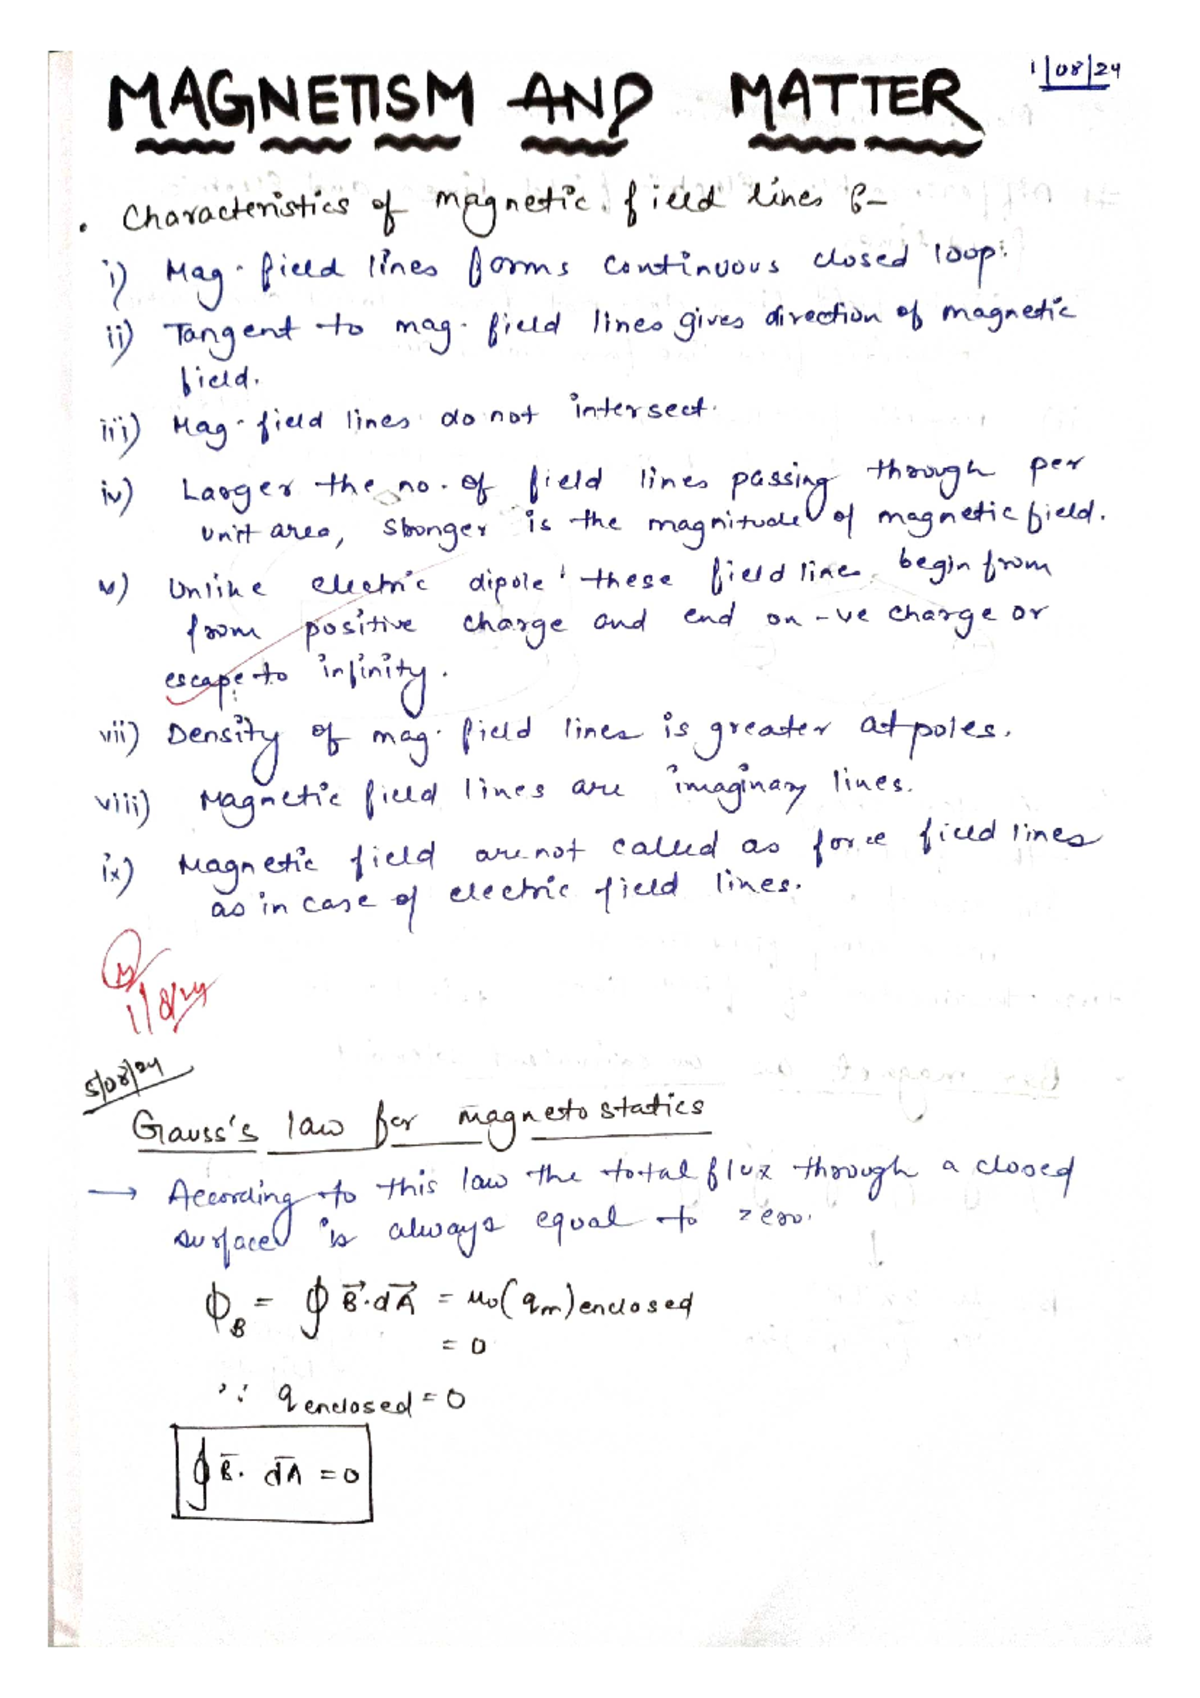 MAGNETISM AND MATTER
1/08/24
• Characteristics of magnetic field lines :-
i) Mag. field lines forms continuous closed loop.
ii) Tangent to mag. field lines gives direction of magnetic
field.
iii) Mag. field lines do not intersect.
iv) Larger the no. of field lines passing through per
unit area, stronger is the magnitude of magnetic field.
v) Unlike electric dipole these field line begin from
from positive charge and end on -ve charge or
escape to infinity.
vii) Density of mag. field lines is greater at poles.
viii) Magnetic field lines are imaginary lines.
ix) Magnetic field are not called as force field lines
as in case of electric field lines.
1/8/24
5/08/24
Gauss's law for magneto statics
→ According to this law the total flux through a closed
surface is always equal to zero.
ϕ_B = ∮ B⃗.dA⃗ = μ₀(qm)enclosed
= 0
∵ q enclosed = 0
∮ B̅. dA̅ = 0